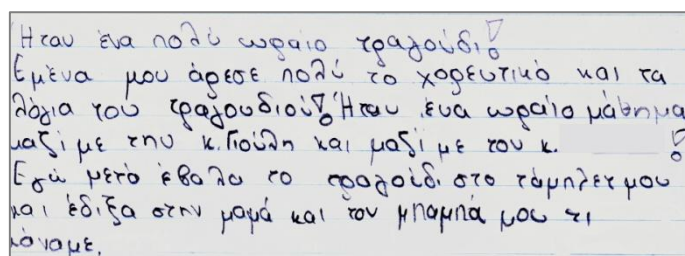 Ήταν ένα πολύ ωραίο τραγούδι!
Εμένα μου άρεσε πολύ το χορευτικό και τα
λόγια του τραγουδιού! Ήταν ένα ωραίο μάθημα
μαζί με την κ. Γιούλη και μαζί με τον κ. !
Εγώ μετά έβαλα το τραγούδι στο τάμπλετ μου
και έδιξα στην μαμά και τον μπαμπά μου τι
κάναμε.